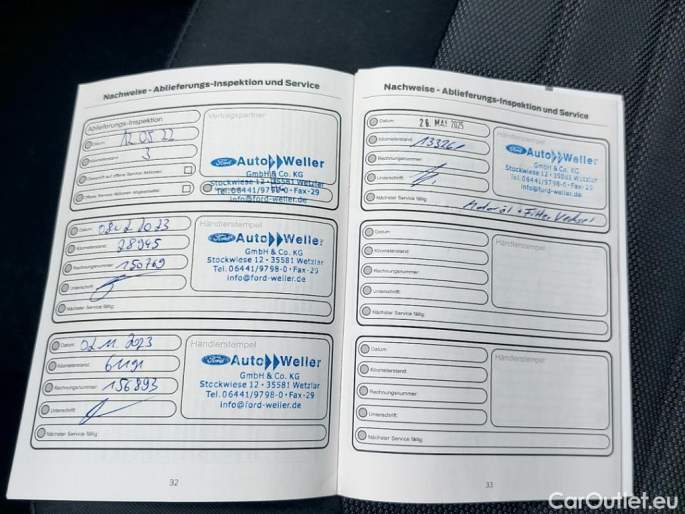 Nachweise - Ablieferungs-Inspektion und Service
Ablieferungs-Inspektion
Vertragspartner
Datum 12.05.22
Kilometerstand 5
Ford Auto Weller
GmbH & Co. KG
Stockwiese 12 · 35581 Wetzlar
Tel. 06441/9798-0 · Fax-29
info@ford-weller.de
Datum 08.02.2023
Händlerstempel
Kilometerstand: 28945
Rechnungsnummer: 150769
Unterschrift:
Nächster Service fällig:
Ford Auto Weller
GmbH & Co. KG
Stockwiese 12 · 35581 Wetzlar
Tel. 06441/9798-0 · Fax-29
info@ford-weller.de
Datum 02.11.2023
Händlerstempel
Kilometerstand:
Rechnungsnummer: 156893
Unterschrift:
Nächster Service fällig:
Ford Auto Weller
GmbH & Co. KG
Stockwiese 12 · 35581 Wetzlar
Tel. 06441/9798-0 · Fax-29
info@ford-weller.de
32
Nachweise - Ablieferungs-Inspektion und Service
Datum 26. MAI 2025
Händlerstempel
Kilometerstand:
Rechnungsnummer:
Unterschrift:
Nächster Service fällig:
Ford Auto Weller
GmbH & Co. KG
Stockwiese 12 · 35581 Wetzlar
Tel. 06441/9798-0 · Fax-29
info@ford-weller.de
Motoröl + Filter
Datum
Händlerstempel
Kilometerstand:
Rechnungsnummer:
Unterschrift:
Nächster Service fällig:
Datum
Händlerstempel
Kilometerstand:
Rechnungsnummer:
Unterschrift:
Nächster Service fällig
33
CarOutlet.eu